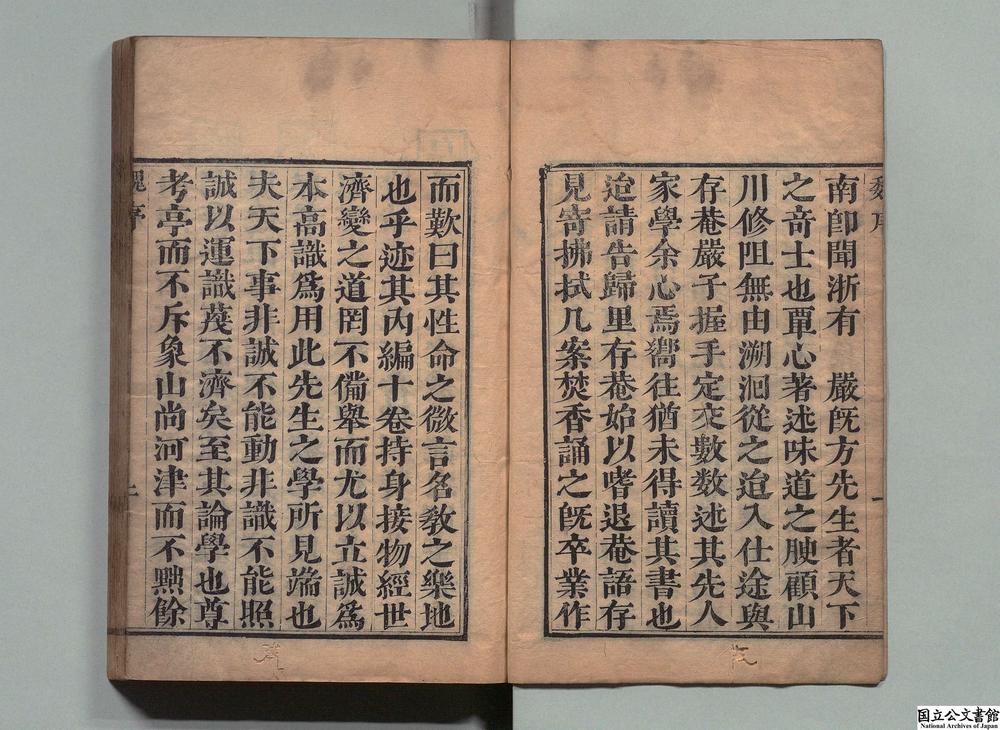 魏序
一
南卽聞浙有　嚴旣方先生者天下
之奇士也覃心著述味道之腴顧山
川修阻無由溯洄從之迨入仕途與
存菴嚴子握手定交數數述其先人
家學余心焉嚮往猶未得讀其書也
迨請告歸里存菴始以嗜退菴語存
見寄拂拭几案焚香誦之旣卒業作
而歎曰其性命之微言名敎之樂地
也乎迹其內編十卷持身接物經世
濟變之道罔不備舉而尤以立誠爲
本高識爲用此先生之學所見端也
夫天下事非誠不能動非識不能照
誠以運識蔑不濟矣至其論學也尊
考亭而不斥象山尚河津而不黜餘
国立公文書館
National Archives of Japan